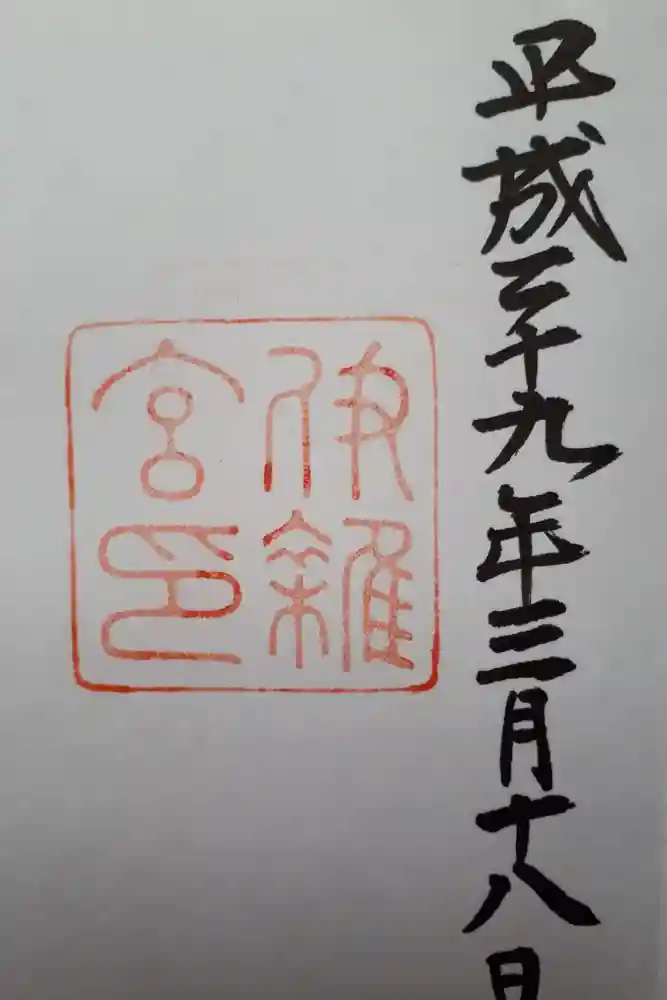 平成二十九年三月十八日
伊雜
宮印